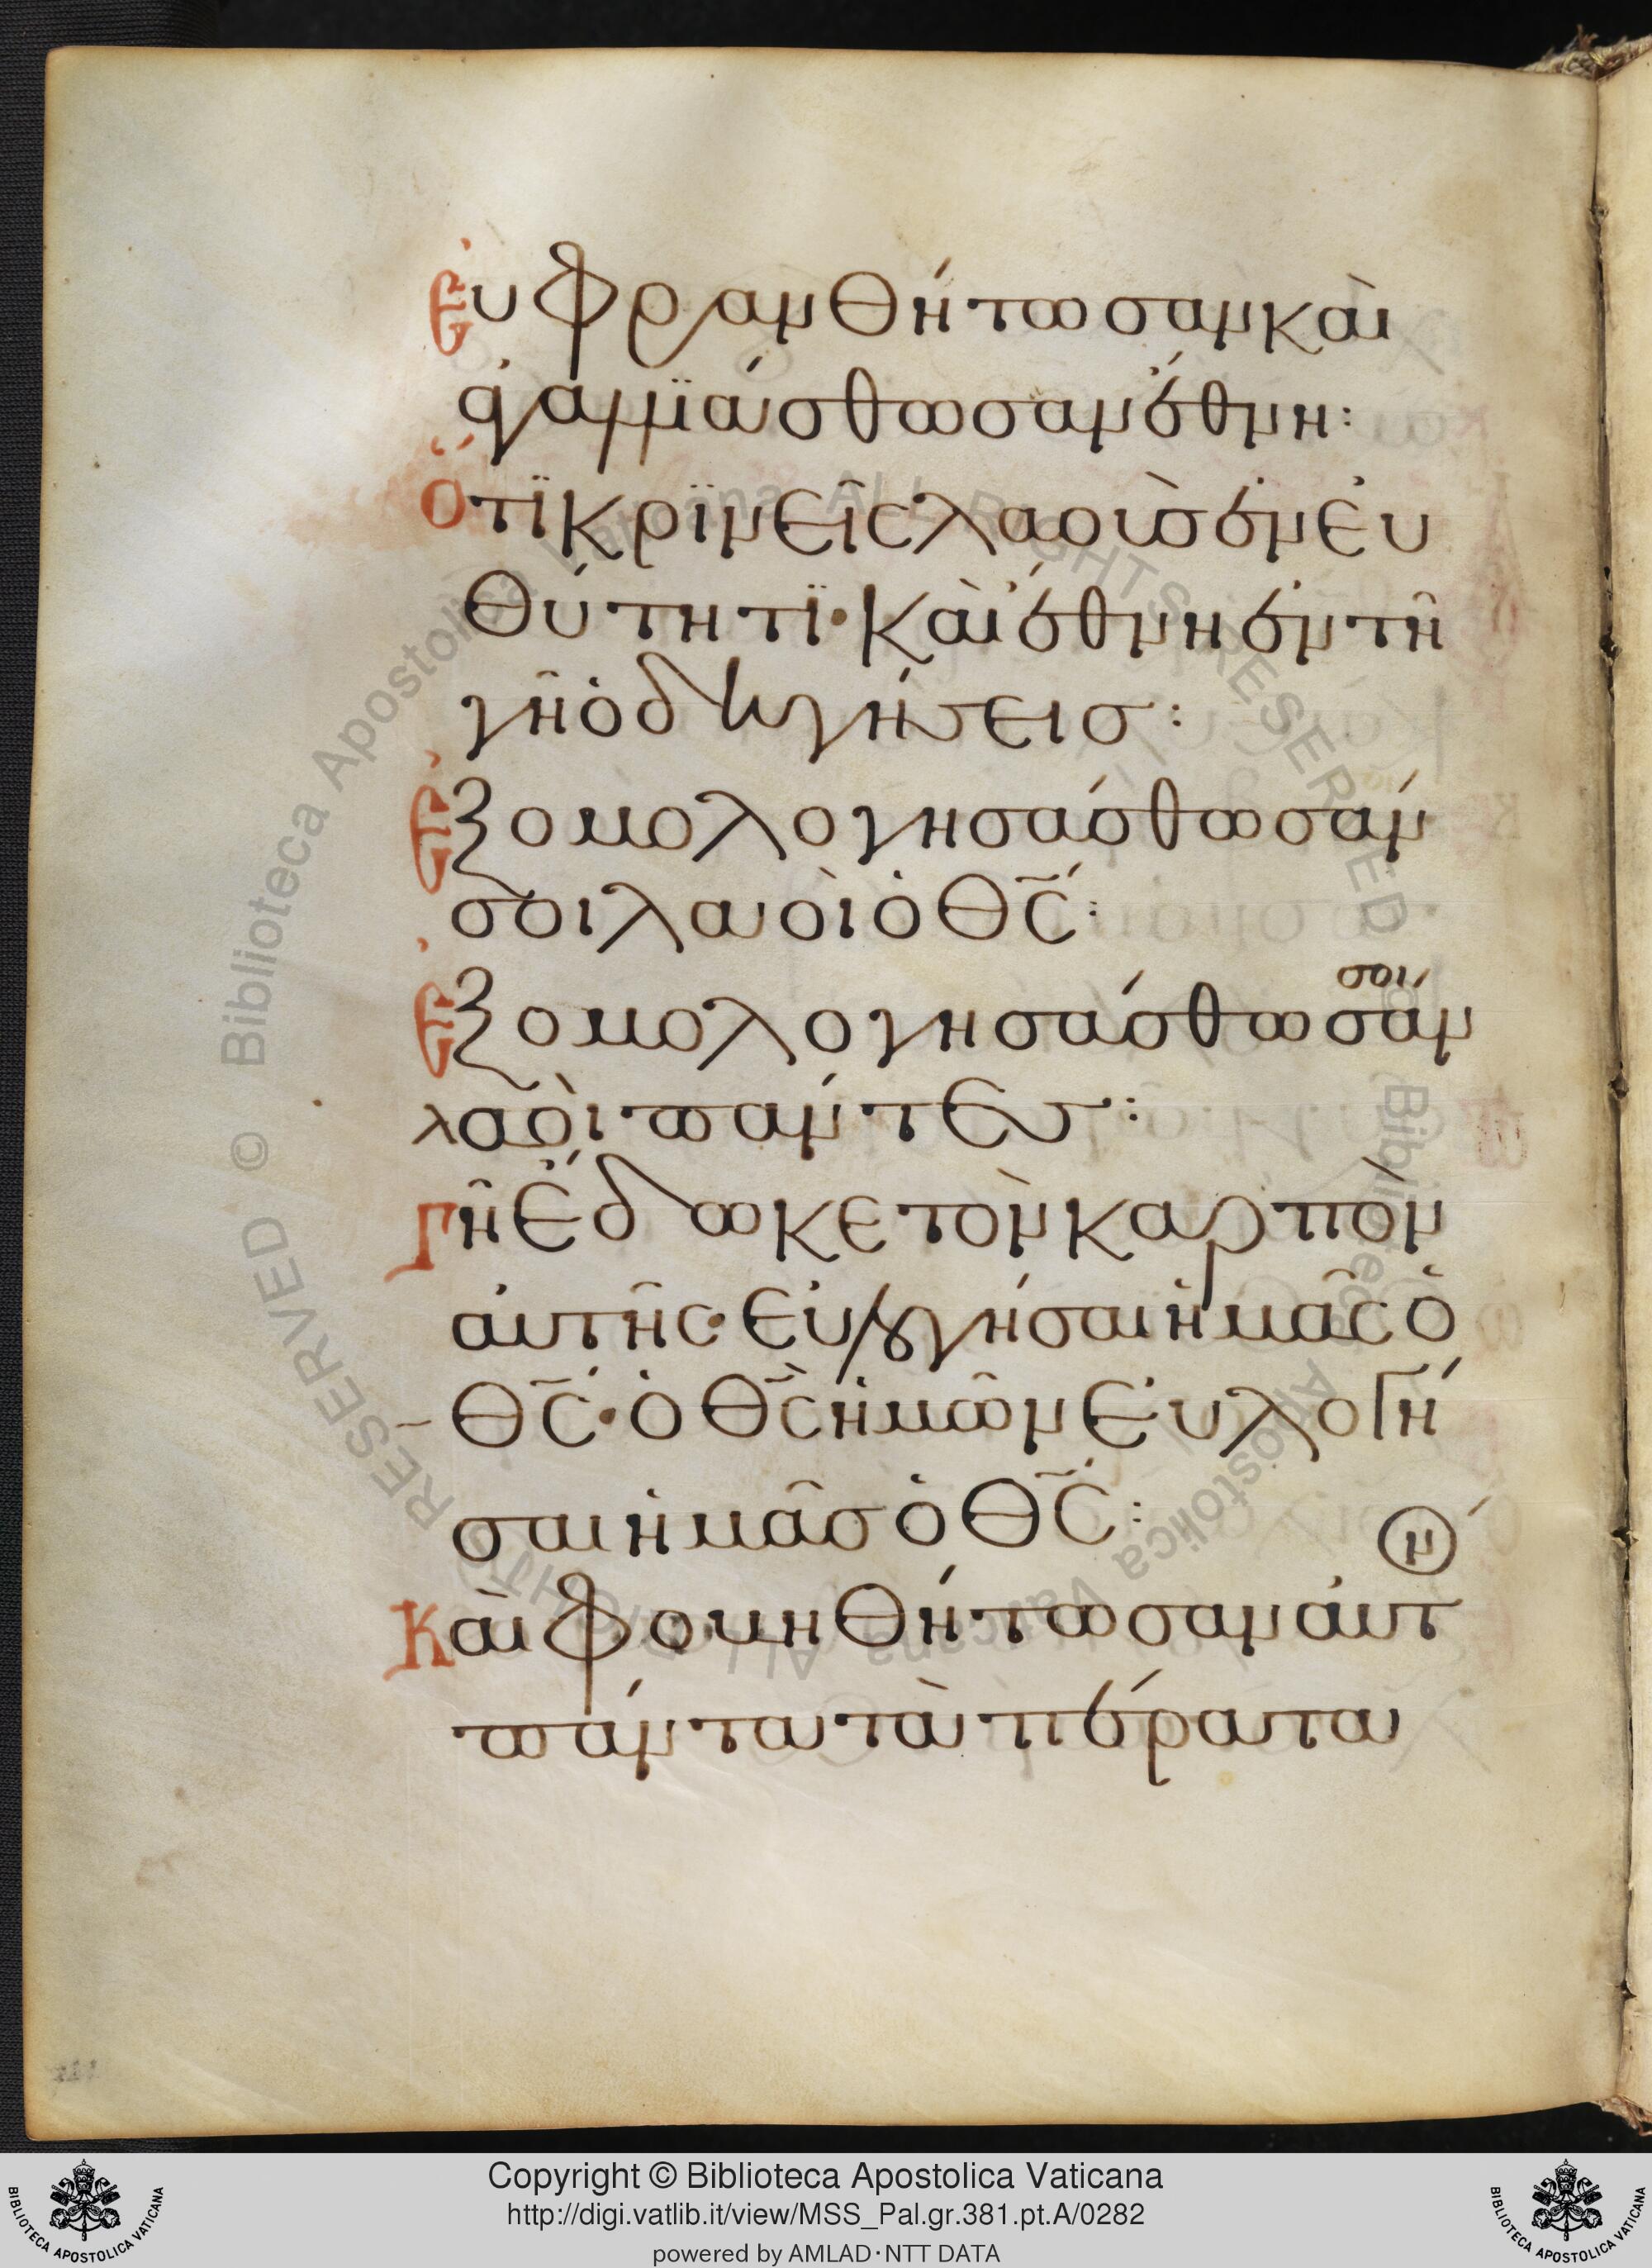 Εὐφρανθήτωσαν καὶ
ἀγαλλϊάσθωσαν ἔθνη:
Ὅτϊ κρϊνεῖς λαοὺσ ἐν εὐ
θύτητϊ· καὶ ἔθνη ἐν τῆ
γῆ ὁδηγήσεισ:
Ἐξομολογησάσθωσάν
σοι λαοὶ ὁ Θς:
σοι
Ἐξομολογησάσθωσάν
λαοὶ πάντες:
Γῆ ἔδωκε τὸν καρπὸν
αὐτῆς· εὐλογήσαι ἡμᾶς ὁ
Θς· ὁ Θς ἡμῶν εὐλογή
σαι ἡμᾶσ ὁ Θς:
ν
Καὶ φοβηθήτωσαν αὐτ
πάντα τὰ πέρατα
Copyright © Biblioteca Apostolica Vaticana
http://digi.vatlib.it/view/MSS_Pal.gr.381.pt.A/0282
powered by AMLAD·NTT DATA
BIBLIOTECA APOSTOLICA VATICANA
BIBLIOTECA APOSTOLICA VATICANA